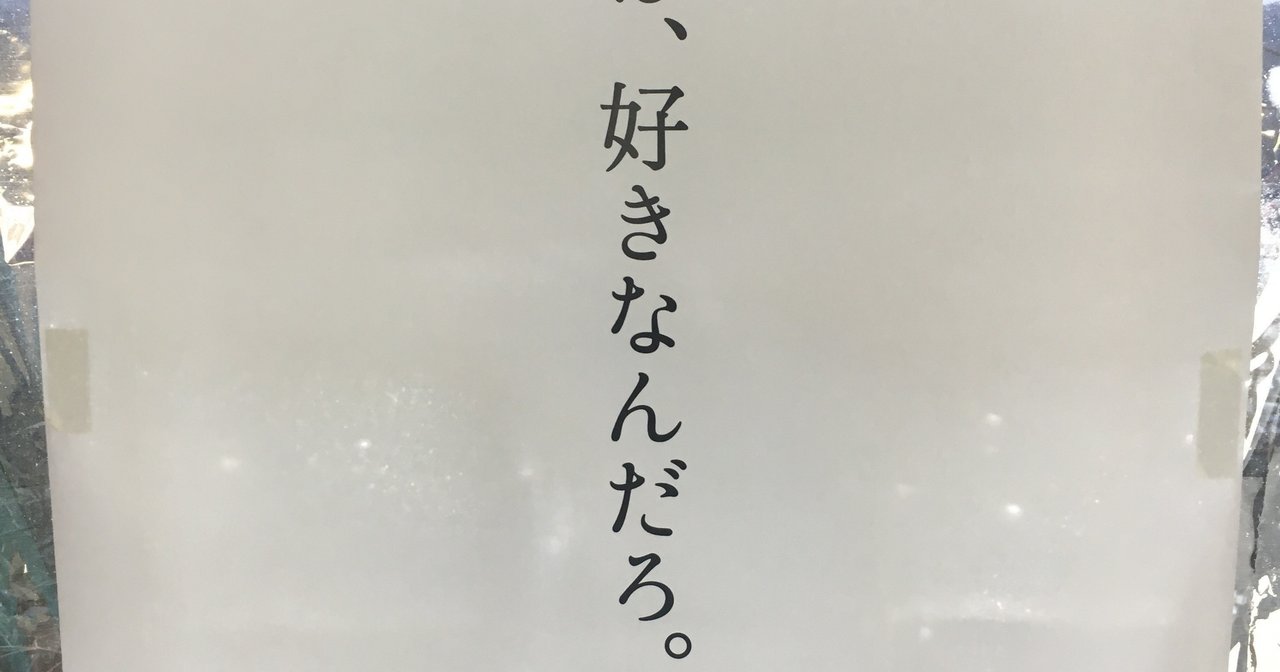 、好きなんだろ。